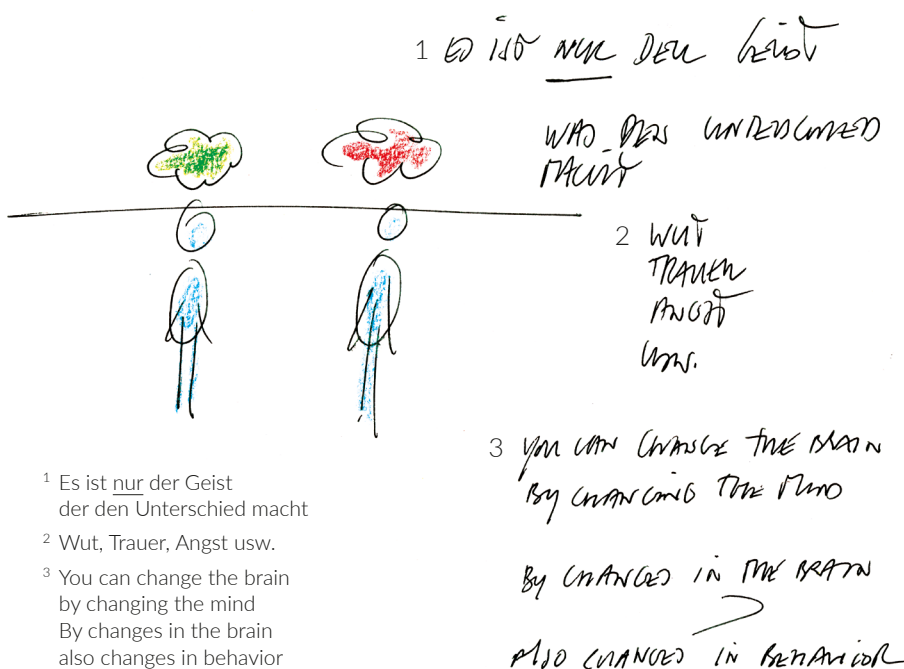 1 ES IST NUR DER GEIST
WAS DEN UNTERSCHIED
MACHT
2 WUT
TRAUER
ANGST
USW.
3 YOU CAN CHANGE THE BRAIN
BY CHANGING THE MIND
BY CHANGES IN THE BRAIN
ALSO CHANGES IN BEHAVIOR
1 Es ist nur der Geist
der den Unterschied macht
2 Wut, Trauer, Angst usw.
3 You can change the brain
by changing the mind
By changes in the brain
also changes in behavior